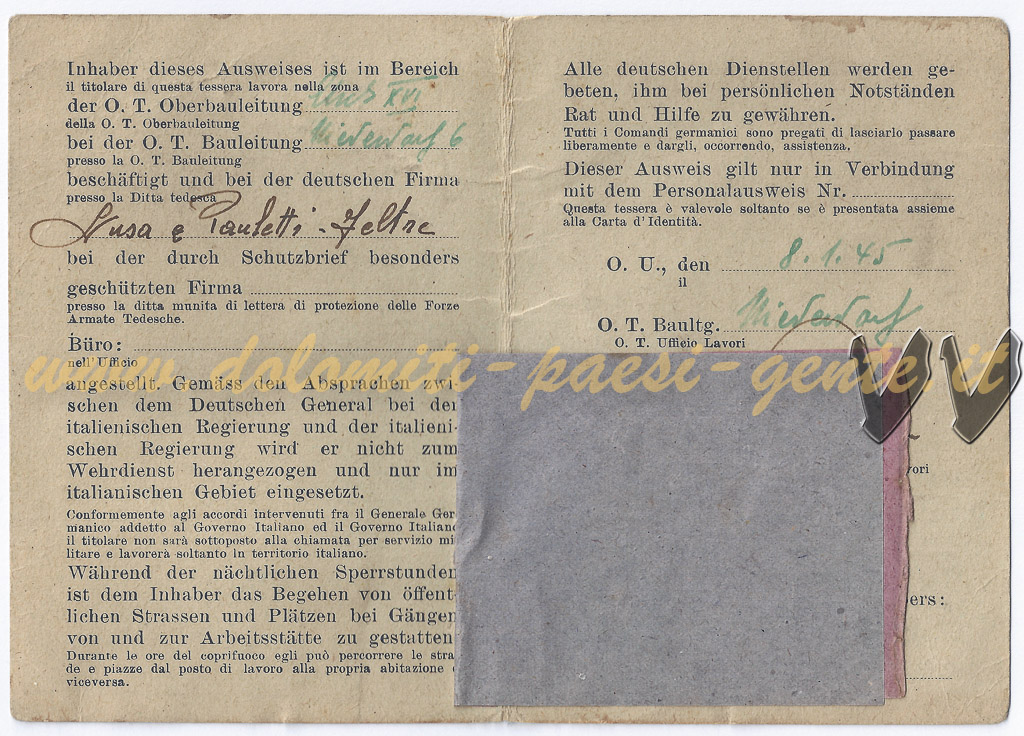 Inhaber dieses Ausweises ist im Bereich
il titolare di questa tessera lavora nella zona
der O. T. Oberbauleitung XVI
della O. T. Oberbauleitung
bei der O. T. Bauleitung Niederdorf 6
presso la O. T. Bauleitung
beschäftigt und bei der deutschen Firma
presso la Ditta tedesca
e Pauletti - Feltre
bei der durch Schutzbrief besonders
geschützten Firma
presso la ditta munita di lettera di protezione delle Forze
Armate Tedesche.
Büro:
nell'Ufficio
angestellt. Gemäss den Absprachen zwi-
schen dem Deutschen General bei der
italienischen Regierung und der italieni-
schen Regierung wird er nicht zum
Wehrdienst herangezogen und nur im
italianischen Gebiet eingesetzt.
Conformemente agli accordi intervenuti fra il Generale Ger-
manico addetto al Governo Italiano ed il Governo Italiano
il titolare non sarà sottoposto alla chiamata per servizio mi-
litare e lavorerà soltanto in territorio italiano.
Während der nächtlichen Sperrstunden
ist dem Inhaber das Begehen von öffent-
lichen Strassen und Plätzen bei Gängen
von und zur Arbeitsstätte zu gestatten
Durante le ore del coprifuoco egli può percorrere le stra-
de e piazze dal posto di lavoro alla propria abitazione e
viceversa.
Alle deutschen Dienstellen werden ge-
beten, ihm bei persönlichen Notständen
Rat und Hilfe zu gewähren.
Tutti i Comandi germanici sono pregati di lasciarlo passare
liberamente e dargli, occorrendo, assistenza.
Dieser Ausweis gilt nur in Verbindung
mit dem Personalausweis Nr.
Questa tessera è valevole soltanto se è presentata assieme
alla Carta d'Identità.
O. U., den 8.1.45
il
O. T. Baultg. Niederdorf
O. T. Ufficio Lavori
vori
ers:
www.dolomiti-paesi-gente.it
VV